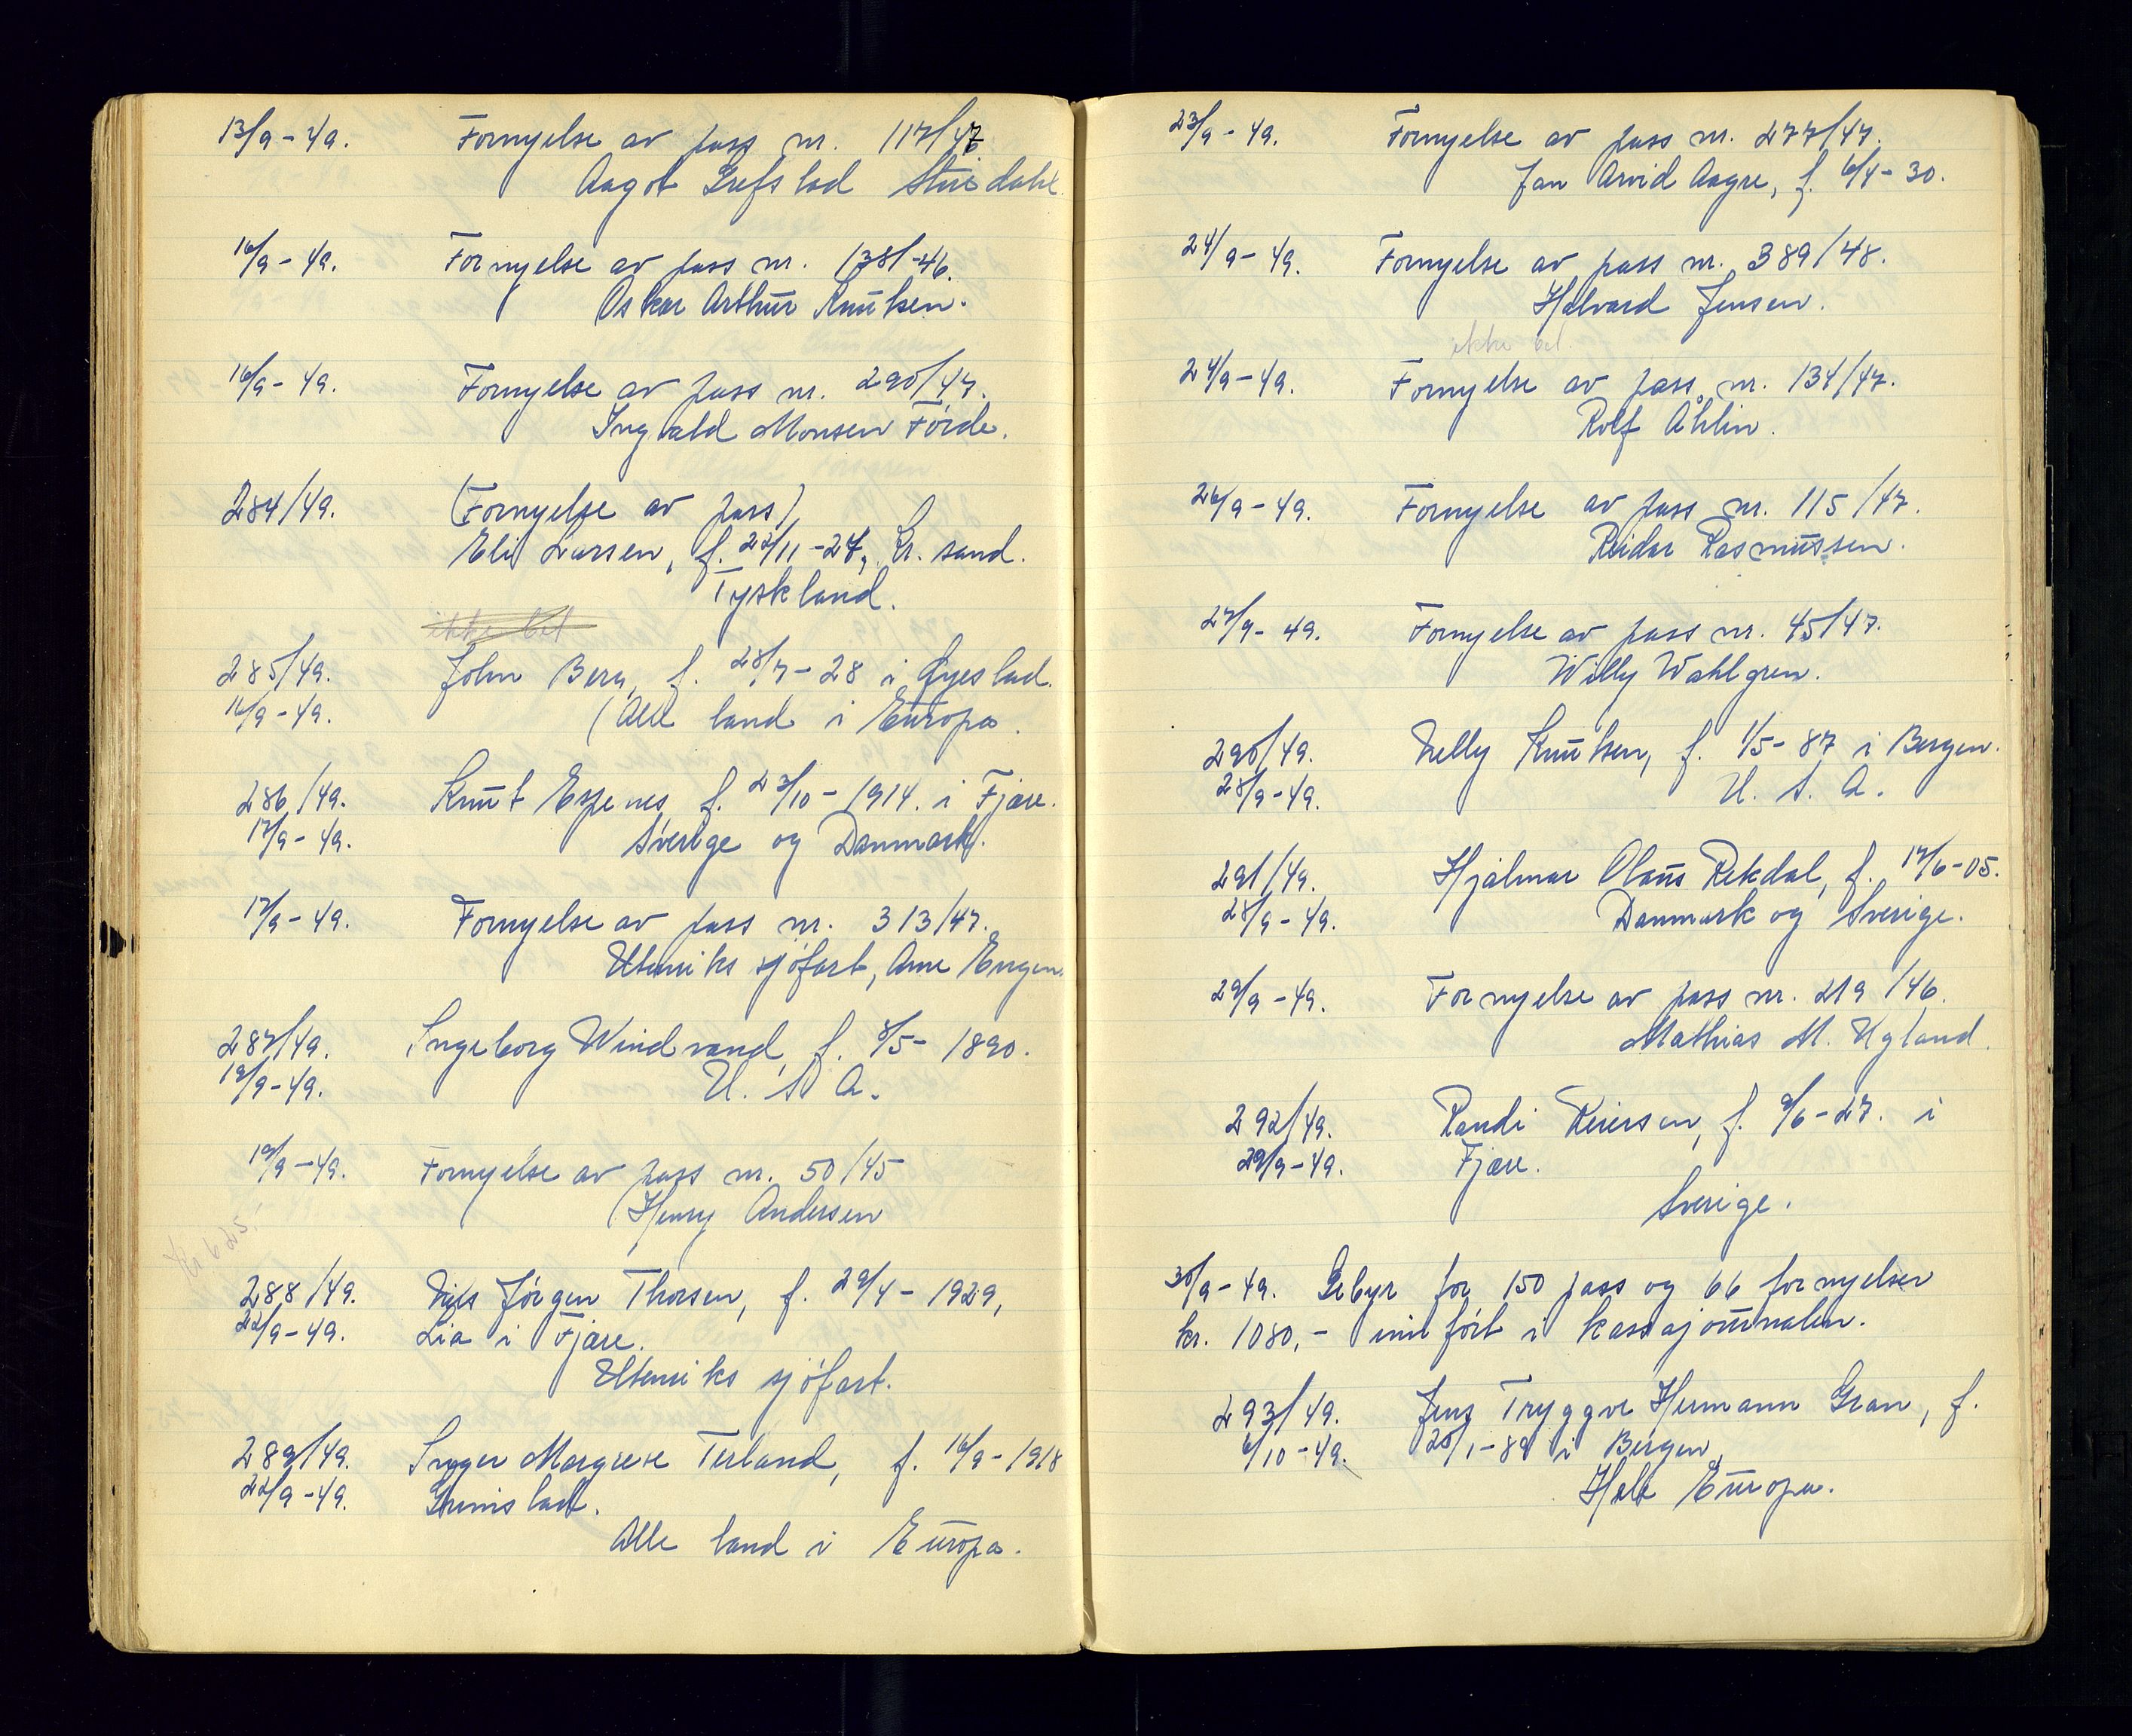 13/9 - 49. Fornyelse av pass nr. 117/47
Aagot Grefstad
16/9 - 49. Fornyelse av pass nr. 138/-46.
Oskar Arthur Knutsen.
16/9 - 49. Fornyelse av pass nr. 290/47.
Ingvald Monsen Förde.
284/49. (Fornyelse av pass)
Eli Larsen, f. 22/11-27, Kr. sand.
Tyskland.
ikke bet
285/49. John Berg, f. 28/7-28 i Øyestad.
16/9 - 49. (Alle land i Europa.
286/49. Knut Espenes f. 23/10-1914. i Fjære.
17/9 - 49. Sverige og Danmark.
17/9 - 49. Fornyelse av pass nr. 313/47.
Utenriks sjöfart, Arne Engen.
287/49. Ingeborg Windvand, f. 8/5- 1890.
19/9 - 49. U. S A.
19/9 - 49. Fornyelse av pass nr. 50/45
(Henry Andersen
288/49. Nils Jörgen Thorsen, f. 29/4 - 1929,
22/9 - 49. Lia i Fjære.
Utenriks sjöfart.
289/49. Inger Margrete Terland, f. 16/9 - 1918
22/9 - 49. Grimstad.
Alle land i Europa.
23/9 - 49. Fornyelse av pass nr. 277/47.
Jan Arvid Aagre, f. 6/4- 30.
24/9 - 49. Fornyelse av pass nr. 389/48.
Halvard Jensen.
ikke bet.
24/9 - 49. Fornyelse av pass nr. 134/47.
Rolf Åhlin.
26/9 - 49. Fornyelse av pass nr. 115/47.
Reidar Rasmussen.
27/9 - 49. Fornyelse av pass nr. 45/47.
Willy Wahlgren.
290/49. Nelly Knutsen, f. 1/5- 87 i Bergen.
28/9 - 49. U. S. A.
291/49. Hjalmar Olaus Rekdal, f. 17/6-05.
28/9 - 49. Danmark og Sverige.
29/9 - 49. Fornyelse av pass nr. 219/46.
Mathias M. Ugland.
292/49. Randi Reiersen, f. 9/6-27. i
29/9 - 49. Fjære.
Sverige.
30/9 - 49. Gebyr for 150 pass og 66 fornyelser
kr. 1080,- innfört i kassajournalen.
293/49. Jens Tryggve Hermann Gran, f.
6/10 - 49. 20/1-89 i Bergen,
Hele Europa.